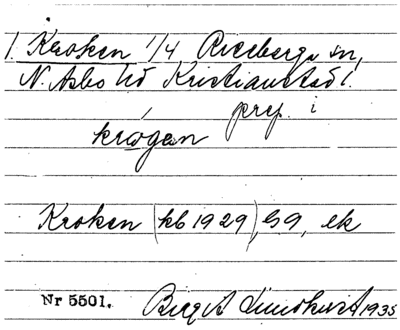 1. Kroken 1/4 Riseberga sn,
N. Åsbo hd Kristianstads l.
prep. i
krógan
Kroken (kb 1929), G9, ek
Nr 5501. Birgit 1935